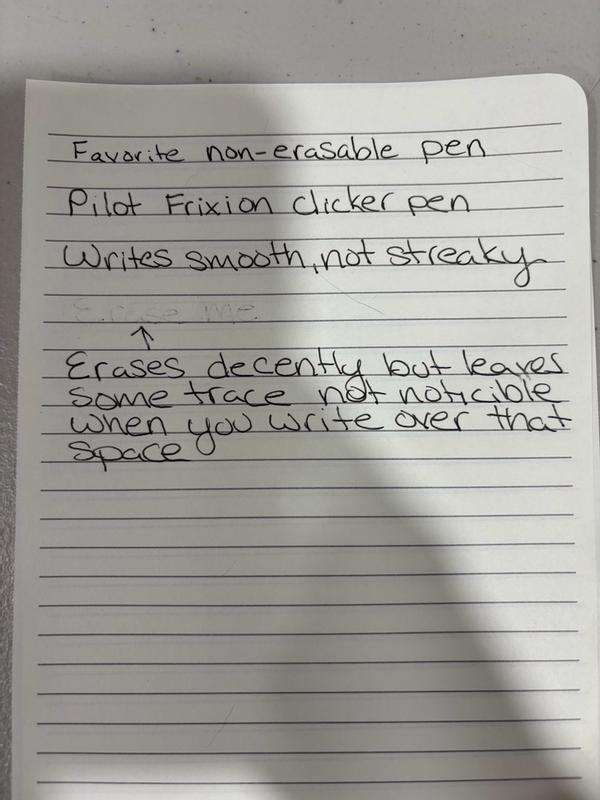 Favorite non-erasable pen
Pilot Frixion clicker pen
Writes smooth, not streaky
Erase me
↑
Erases decently but leaves
some trace not noticible
when you write over that
space